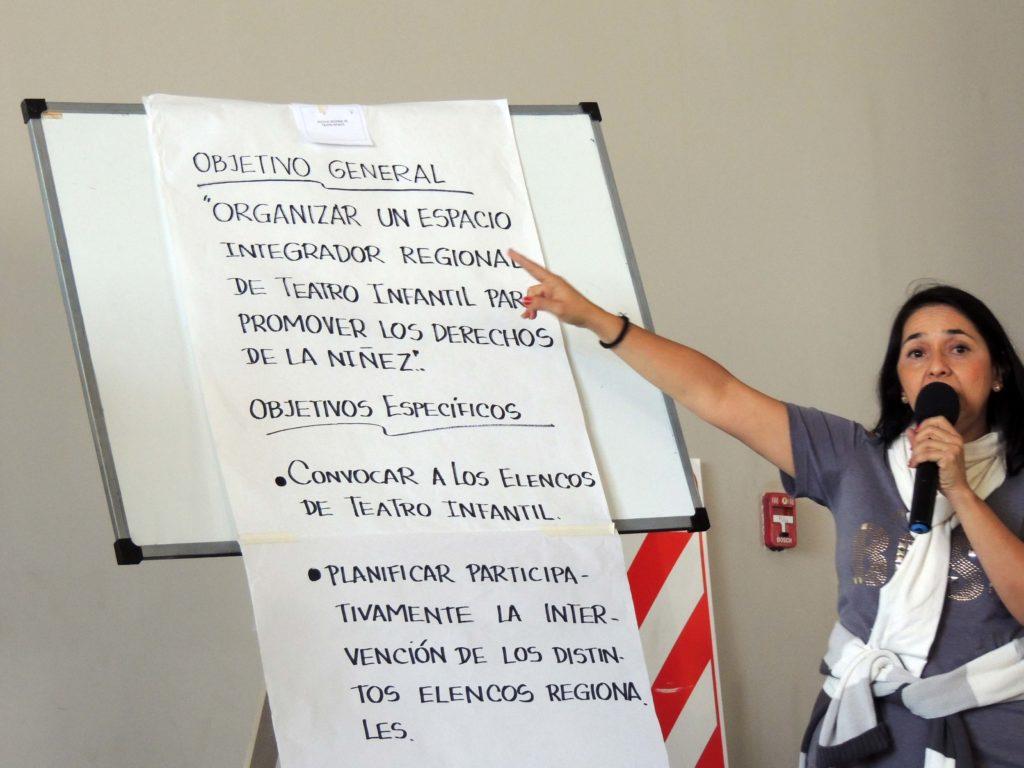 OBJETIVO GENERAL
"ORGANIZAR UN ESPACIO
INTEGRADOR REGIONAL
DE TEATRO INFANTIL PAR
PROMOVER LOS DERECHOS
DE LA NIÑEZ".
OBJETIVOS ESPECÍFICOS
• CONVOCAR A LOS ELENCOS
DE TEATRO INFANTIL.
• PLANIFICAR PARTICIPA-
TIVAMENTE LA INTER-
VENCIÓN DE LOS DISTIN-
TOS ELENCOS REGIONA.
LES.
FIRE
BOSCH